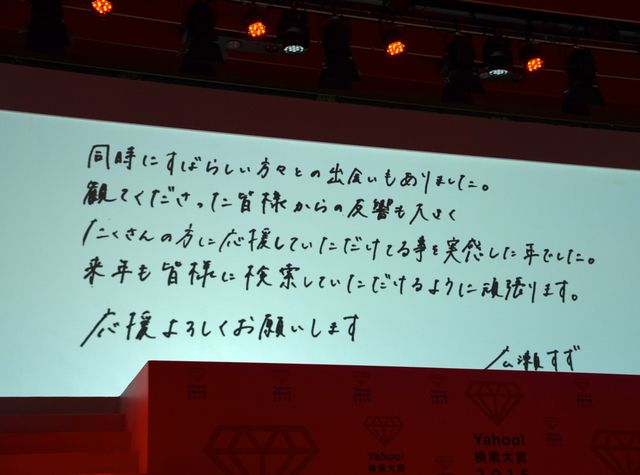 同時にすばらしい方々との出会いもありました。
観てくださった皆様からの反響も大きく
たくさんの方に応援していただけてる事を実感した年でした。
来年も皆様に検索していただけるように頑張ります。
応援よろしくお願いします
広瀬すず
Yahoo!
検索大賞
Yahoo!
検索大賞
2015